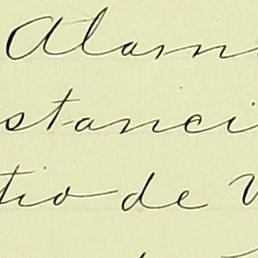 Alam
stanci
tio de V